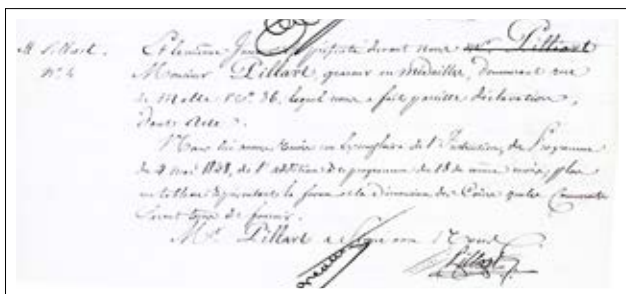 M. Pillart.
N° 4
Et le même Jour s'est présenté devant nous Mr. Pilliart
Monsieur Pillart, graveur en médailles, demeurant rue
de Malte N° 36, lequel nous a fait pareille déclaration,
dont Acte.
Nous lui avons remis un Exemplaire de l'Instruction, du Programme
du 4 mai 1848, de l'addition au programme du 18 du même mois, plus
un tableau la forme et la Dimension des Coins que les Concurrents
seront tenus de fournir.
Mr. Pillart a Signé avec Nous.
Pillart